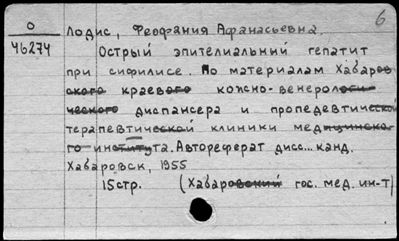 6
О
46274
Лодис, Феофания Афанасьевна.
Острый эпителиальний гепатит
при сифилисе. По материалам Хабаров
ского краевого кожно-венерологи-
ческого диспансера и пропедевтической
терапевтической клиники медицинско-
го института. Автореферат дисс... канд.
Хабаровск, 1955
15стр. (Хабаровский гос. мед. ин-т)